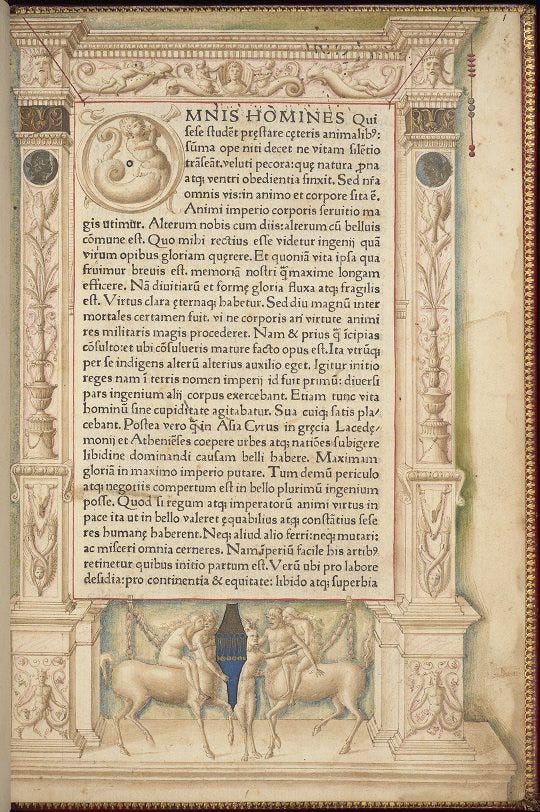 1
OMNIS HOMINES Qui
sese studēt pręstare cęteris animalibꝰ:
sūma ope niti decet ne vitam silētio
trāseāt.veluti pecora:quę natura ꝓna
atqꝫ ventri obedientia finxit. Sed nr̄a
omnis vis:in animo et corpore sita ē.
Animi imperio corporis seruitio ma
gis utimur. Alterum nobis cum diis:alterum cū belluis
cōmune est. Quo mihi rectius esse videtur ingenij quā
virium opibus gloriam quęrere. Et quoniā vita ipsa qua
fruimur breuis est. memoriā nostri q̄maxime longam
efficere. Nā diuitiarū et formę gloria fluxa atqꝫ fragilis
est. Virtus clara ęternaqꝫ habetur. Sed diu magnū inter
mortales certamen fuit. vi ne corporis an virtute animi
res militaris magis procederet. Nam & prius q̄ īcipias
cōsulto:et ubi cōsulueris mature facto opus est. Ita vtrūqꝫ
per se indigens alterū alterius auxilio eget. Igitur initio
reges nam ī terris nomen imperij id fuit primū: diuersi
pars ingenium alij corpus exercebant. Etiam tunc vita
hominū sine cupiditate agitabatur. Sua cuiqꝫ satis pla/
cebant. Postea vero q̄ in Asia Cyrus in gręcia Lacedę/
monij et Atheniēses coepere urbes atqꝫ natiōes subigere
libidine dominandi causam belli habere. Maximam
gloriā in maximo imperio putare. Tum demū periculo
atqꝫ negotiis compertum est in bello plurimū ingenium
posse. Quod si regum atqꝫ imperatorū animi virtus in
pace ita ut in bello valeret ęquabilius atqꝫ cōstātius sese
res humanę haberent. Neqꝫ aliud alio ferri:neqꝫ mutari:
ac misceri omnia cerneres. Nam īperiū facile his artibꝰ
retinetur quibus initio partum est. Verū ubi pro labore
desidia:pro continentia & equitate: libido atqꝫ superbia